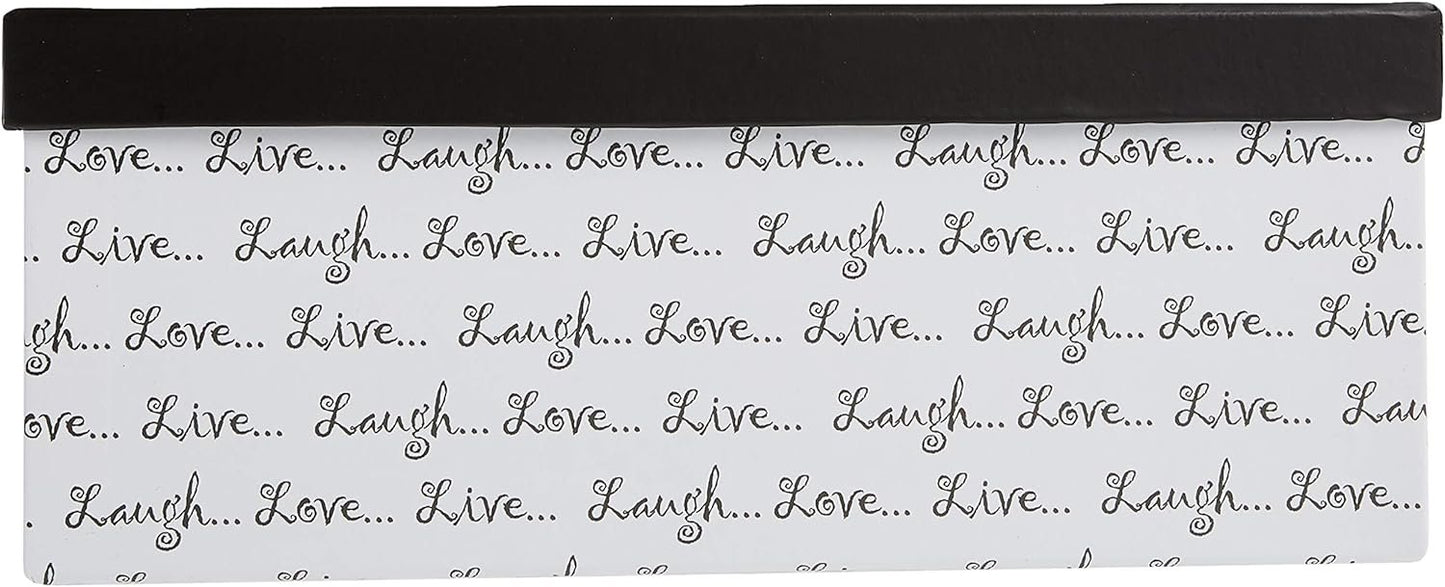 Love... Live... Laugh... Love... Live... Laugh... Love... Live...
Live... Laugh... Love... Live... Laugh... Love... Live... Laugh...
gh... Love... Live... Laugh... Love... Live... Laugh... Love... Live.
ove... Live... Laugh... Love... Live... Laugh... Love... Live... Lau
Laugh... Love... Live... Laugh... Love... Live... Laugh... Love...